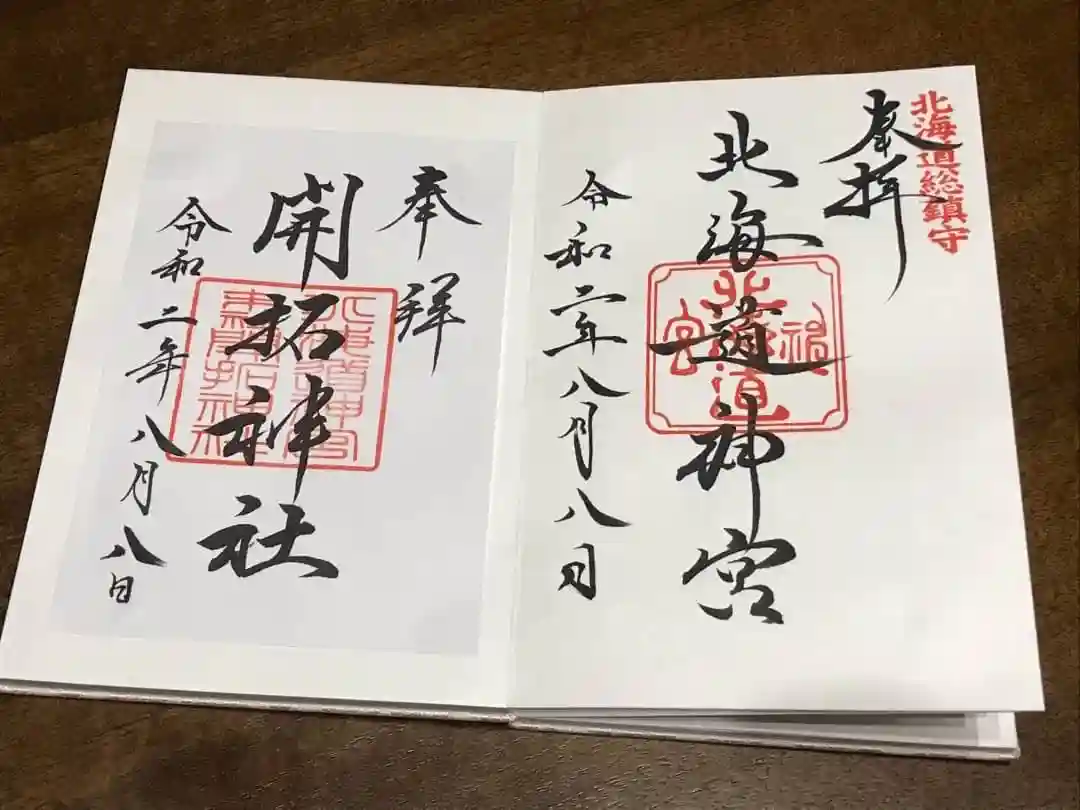 北海道総鎮守
奉拝
北海道神宮
北海道神宮
令和二年八月八日
奉拝
開拓神社
北海道神宮
末開拓神社
令和二年八月八日